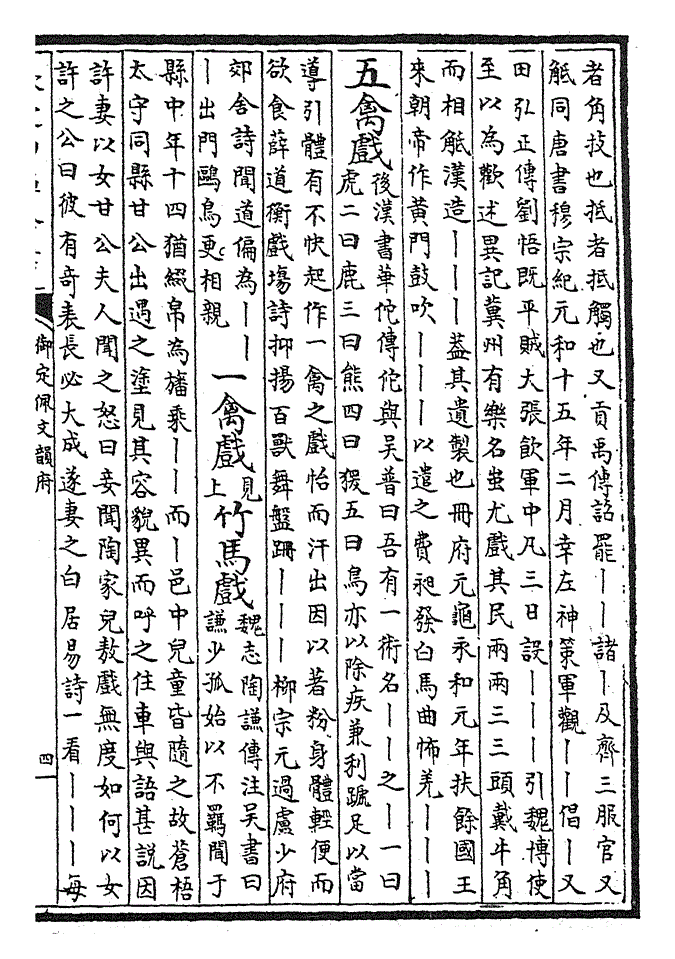 者角技也抵者抵觸也又貢禹傳詔罷｜｜諸｜及齊三服官又
觝同唐書穆宗紀元和十五年二月幸左神策軍觀｜｜倡｜又
田弘正傳劉悟既平賊大張飲軍中凡三日設｜｜｜引魏博使
至以為歡述異記冀州有樂名蚩尤戲其民兩兩三三頭戴牛角
而相觝漢造｜｜｜葢其遺製也冊府元龜永和元年扶餘國王
來朝帝作黃門鼓吹｜｜｜以遣之費昶發白馬曲怖羌｜｜｜
五禽戲
後漢書華佗傳佗與吳普曰吾有一術名｜｜之｜一曰
虎二曰鹿三曰熊四曰猨五曰鳥亦以除疾兼利蹏足以當
導引體有不快起作一禽之戲怡而汗出因以著粉身體輕便而
欲食薛道衡戲塲詩抑揚百獸舞盤跚｜｜｜柳宗元過盧少府
郊舍詩聞道偏為｜｜
｜出門鷗鳥更相親
一禽戲
見
上
竹馬戲
魏志陶謙傳注吳書曰
謙少孤始以不羈聞于
縣中年十四猶綴帛為旛乘｜｜而｜邑中兒童皆隨之故蒼梧
太守同縣甘公出遇之塗見其容貌異而呼之住車與語甚說因
許妻以女甘公夫人聞之怒曰妾聞陶家兒敖戲無度如何以女
許之公曰彼有奇表長必大成遂妻之白居易詩一看｜｜｜每
御定佩文韻府
四